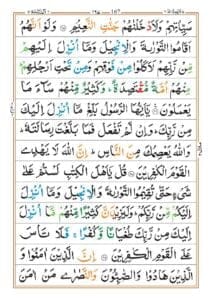 سَيِّاٰتِهِمْ وَلَاَدْخَلْنٰهُمْ جَنّٰتِ النَّعِيْمِ ۝ وَلَوْ اَنَّهُمْ
اَقَامُوا التَّوْرٰىةَ وَالْاِنْجِيْلَ وَمَآ اُنْزِلَ اِلَيْهِمْ
مِّنْ رَّبِّهِمْ لَاَكَلُوْا مِنْ فَوْقِهِمْ وَمِنْ تَحْتِ اَرْجُلِهِمْ
مِنْهُمْ اُمَّةٌ مُّقْتَصِدَةٌ وَكَثِيْرٌ مِّنْهُمْ سَآءَ مَا
يَعْمَلُوْنَ ۝ يٰٓاَيُّهَا الرَّسُوْلُ بَلِّغْ مَآ اُنْزِلَ اِلَيْكَ
مِنْ رَّبِّكَ وَاِنْ لَّمْ تَفْعَلْ فَمَا بَلَّغْتَ رِسَالَتَهٗ
وَاللّٰهُ يَعْصِمُكَ مِنَ النَّاسِ اِنَّ اللّٰهَ لَا يَهْدِى
الْقَوْمَ الْكٰفِرِيْنَ ۝ قُلْ يٰٓاَهْلَ الْكِتٰبِ لَسْتُمْ عَلٰى
شَىْءٍ حَتّٰى تُقِيْمُوا التَّوْرٰىةَ وَالْاِنْجِيْلَ وَمَآ اُنْزِلَ
اِلَيْكُمْ مِّنْ رَّبِّكُمْ وَلَيَزِيْدَنَّ كَثِيْرًا مِّنْهُمْ مَّآ اُنْزِلَ
اِلَيْكَ مِنْ رَّبِّكَ طُغْيَانًا وَّكُفْرًا فَلَا تَاْسَ
عَلَى الْقَوْمِ الْكٰفِرِيْنَ ۝ اِنَّ الَّذِيْنَ اٰمَنُوْا وَ
الَّذِيْنَ هَادُوْا وَالصَّابِـُٔوْنَ وَالنَّصٰرٰى مَنْ اٰمَنَ